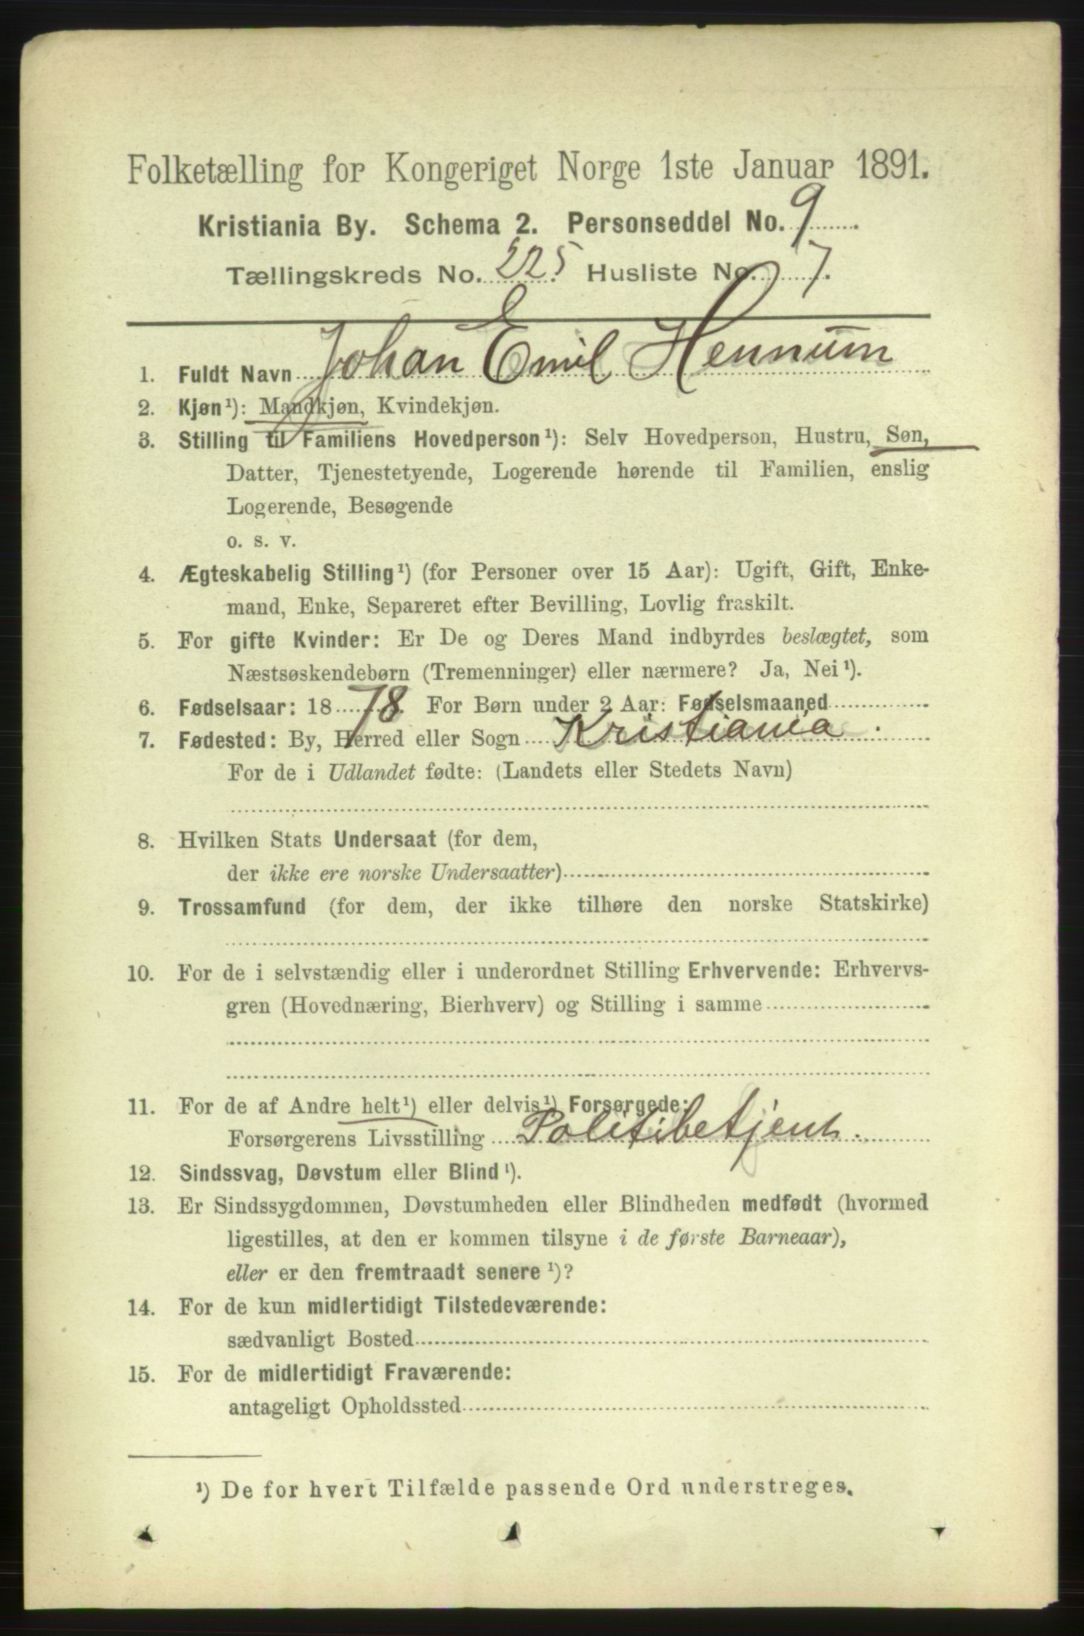 Folketælling for Kongeriget Norge 1ste Januar 1891.
Kristiania By. Schema 2. Personseddel No. 9.
Tællingskreds No. 225. Husliste No. 7.
1. Fuldt Navn Johan Emil Hennum
2. Kjøn¹): Mandkjøn, Kvindekjøn.
3. Stilling til Familiens Hovedperson¹): Selv Hovedperson, Hustru, Søn,
Datter, Tjenestetyende, Logerende hørende til Familien, enslig
Logerende, Besøgende
o. s. v.
4. Ægteskabelig Stilling¹) (for Personer over 15 Aar): Ugift, Gift, Enke-
mand, Enke, Separeret efter Bevilling, Lovlig fraskilt.
5. For gifte Kvinder: Er De og Deres Mand indbyrdes beslægtet, som
Næstsøskendebørn (Tremenninger) eller nærmere? Ja, Nei¹).
6. Fødselsaar: 1878 For Børn under 2 Aar: Fødselsmaaned
7. Fødested: By, Herred eller Sogn Kristiania.
For de i Udlandet fødte: (Landets eller Stedets Navn)
8. Hvilken Stats Undersaat (for dem,
der ikke ere norske Undersaatter)
9. Trossamfund (for dem, der ikke tilhøre den norske Statskirke)
10. For de i selvstændig eller i underordnet Stilling Erhvervende: Erhvervs-
gren (Hovednæring, Bierhverv) og Stilling i samme
11. For de af Andre helt¹) eller delvis¹) Forsørgede:
Forsørgerens Livsstilling Politibetjent.
12. Sindssvag, Døvstum eller Blind¹).
13. Er Sindssygdommen, Døvstumheden eller Blindheden medfødt (hvormed
ligestilles, at den er kommen tilsyne i de første Barneaar),
eller er den fremtraadt senere¹)?
14. For de kun midlertidigt Tilstedeværende:
sædvanligt Bosted
15. For de midlertidigt Fraværende:
antageligt Opholdssted
¹) De for hvert Tilfælde passende Ord understreges.